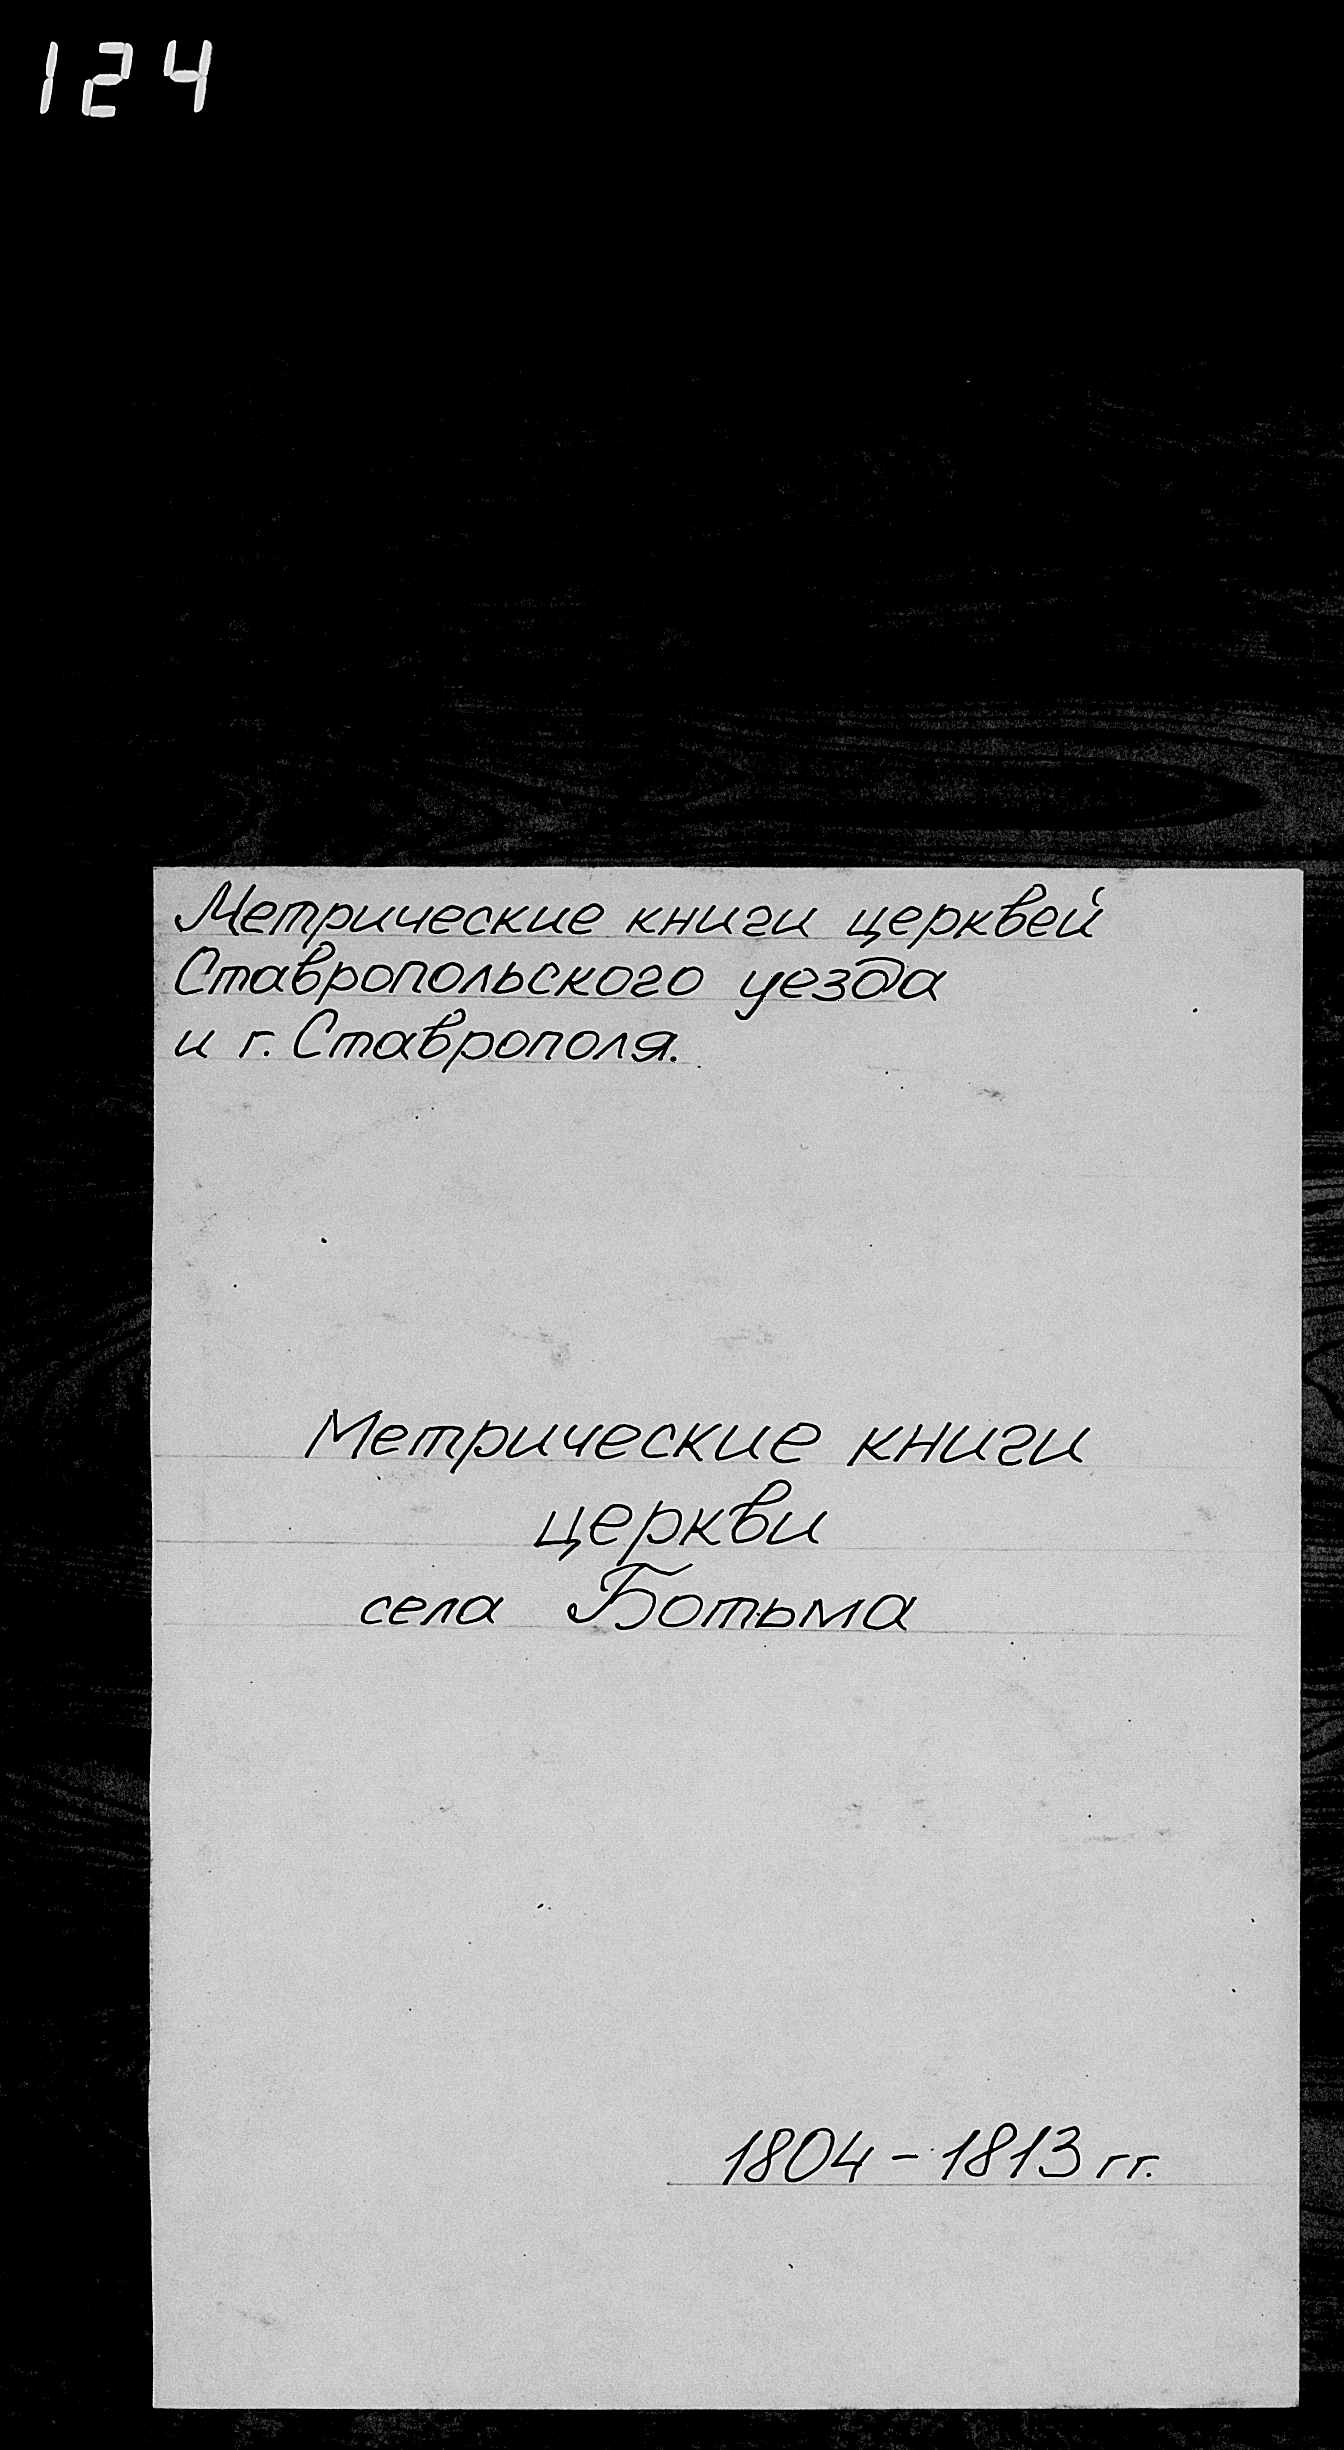 124
Метрические книги церквей
Ставропольского уезда
и г. Ставрополя.
Метрические книги
церкви
села Ботьма
1804 - 1813 гг.